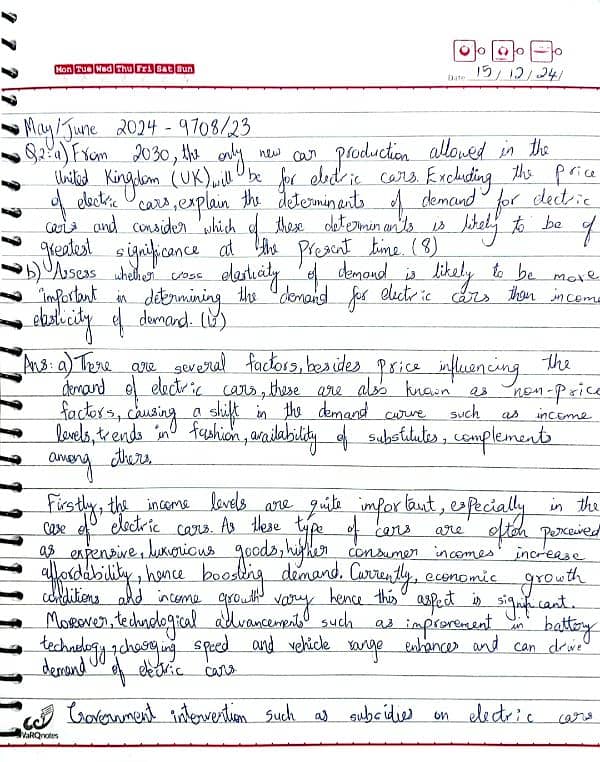 Mon Tue Wed Thu Fri Sat Sun
Date 15/12/24/
May/June 2024 - 9708/23
Q2:a) From 2030, the only new car production allowed in the
United Kingdom (UK) will be for electric cars. Excluding the price
of electric cars, explain the determinants of demand for electric
cars and consider which of these determinants is likely to be of
greatest significance at the present time. (8)
b) Assess whether cross elasticity of demand is likely to be more
important in determining the demand for electric cars than income
elasticity of demand. (12)
Ans: a) There are several factors, besides price influencing the
demand of electric cars, these are also known as non-price
factors, causing a shift in the demand curve such as income
levels, trends in fashion, availability of substitutes, complements
among others.
Firstly, the income levels are quite important, especially in the
case of electric cars. As these type of cars are often perceived
as expensive, luxurious goods, higher consumer incomes increase
affordability, hence boosting demand. Currently, economic growth
conditions and income growth vary hence this aspect is significant.
Moreover, technological advancements such as improvement in battery
technology, charging speed and vehicle range enhances and can drive
demand of electric cars
Government intervention such as subsidies on electric cars
VaRQnotes